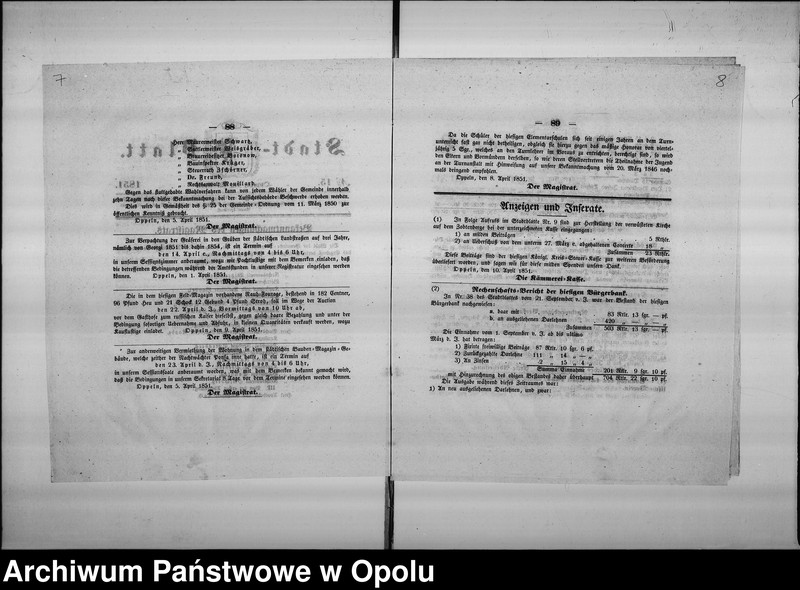 7
— 88 —
Herr Maurermeister Schwartz,
" Sattlermeister
" Brauereibesitzer
" Bauinspektor Krüger,
" Steuerrath
" Dr. Freund,
" Rechtsanwalt
Gegen das stattgehabte Wahlverfahren kann von jedem Wähler der Gemeinde innerhalb
zehn Tagen nach dieser Bekanntmachung bei der Aufsichtsbehörde Beschwerde erhoben werden.
Dies wird in Gemäßheit des §. 25 der Gemeinde-Ordnung vom 11. März 1850 zur
öffentlichen Kenntniß gebracht.
Oppeln, den 5. April 1851.
Der Magistrat.
Zur Verpachtung der Gräserei in den Gräben der städtischen Landstraßen auf drei Jahre,
nämlich von Georgi 1851 bis dahin 1854, ist ein Termin auf
den 14. April c., Nachmittags von 4 bis 6 Uhr,
in unserm Sessionszimmer anberaumt, wozu wir Pachtlustige mit dem Bemerken einladen, daß
die betreffenden Bedingungen während der Amtsstunden in unserer Registratur eingesehen werden
können. Oppeln, den 1. April 1851.
Der Magistrat.
Die in dem hiesigen Feld-Magazin vorhandene Rauh-Fourage, bestehend in 182 Centner,
96 Pfund Heu und 21 Schock 12 Gebund 4 Pfund Stroh, soll im Wege der Auction
den 22. April d. J., Vormittags von 10 Uhr ab,
vor dem Gasthofe zum russischen Kaiser hieselbst, gegen gleich baare Bezahlung und unter der
Bedingung sofortiger Uebernahme und Abfuhr, in kleinen Quantitäten verkauft werden, wozu
Kauflustige einladet. Oppeln, den 9. April 1851.
Der Magistrat.
Zur anderweitigen Vermiethung der Wohnung in dem städtischen Bauden-Magazin-Ge-
bäude, welche zeither der Nachtwächter inne hatte, ist ein Termin auf
den 23. April d. J., Nachmittags von 4 bis 6 Uhr,
in unserm Sessionssaale anberaumt worden, was mit dem Bemerken bekannt gemacht wird,
daß die Bedingungen in unserm Sekretariat 8 Tage vor dem Termine eingesehen werden können.
Oppeln, den 5. April 1851.
Der Magistrat.
8
— 89 —
Da die Schüler der hiesigen Elementarschulen sich seit einigen Jahren an dem Turn-
unterricht fast gar nicht betheiligen, obgleich sie hierzu gegen das mäßige Honorar von viertel-
jährig 5 Sgr., welches an den Turnlehrer im Voraus zu entrichten, berechtigt sind, so wird
den Eltern und Vormündern derselben, so wie deren Stellvertretern die Theilnahme der Jugend
an der Turnanstalt mit Hinweisung auf unsere Bekanntmachung vom 20. März 1846 noch-
mals dringend empfohlen.
Oppeln, den 8. April 1851.
Der Magistrat.
Anzeigen und Inserate.
(1) In Folge Aufrufs im Stadtblatte Nr. 9 sind zur Herstellung der verwüsteten Kirche
auf dem Zobtenberge bei der unterzeichneten Kasse eingegangen:
1) an milden Beiträgen 5 Rthlr.
2) an Ueberschuß von dem unterm 27. März c. abgehaltenen Concerte 18 "
Zusammen 23 Rthlr.
Diese Beträge sind der hiesigen Königl. Kreis-Steuer-Kasse zur weiteren Beförderung
überliefert worden, und sagen wir für diese milden Spenden unsern Dank.
Oppeln, den 10. April 1851.
Die Kämmerei-Kasse.
(2) Rechenschafts-Bericht der hiesigen Bürgerbank.
In Nr. 38 des Stadtblattes vom 21. September v. J. war der Bestand der hiesigen
Bürgerbank nachgewiesen:
a. baar mit 83 Rtlr. 13 sgr. — pf.
b. an ausgeliehenen Darlehnen 420 " — " — "
Zusammen 503 Rtlr. 13 sgr. — pf.
Die Einnahme vom 1. September v. J. ab bis ultimo
März d. J. hat betragen:
1) Fixirte freiwillige Beiträge 87 Rtlr. 10 sgr. 6 pf.
2) Zurückgezahlte Darlehne 111 " 14 " — "
3) An Zinsen 2 " 15 " 4 "
Summa Einnahme 201 Rtlr. 9 sgr. 10 pf.
mit Hinzurechnung des obigen Bestandes daher überhaupt 704 Rtlr. 22 sgr. 10 pf.
Die Ausgabe während dieses Zeitraumes war:
1) An neu ausgeliehenen Darlehnen, und zwar:
Archiwum Państwowe w Opolu